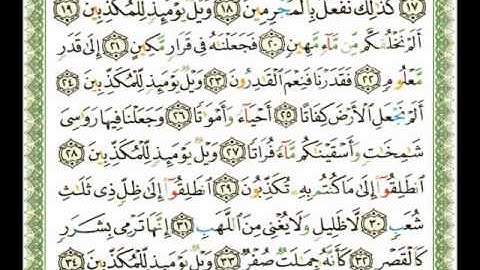 ﴿١٧﴾ كَذَٰلِكَ نَفْعَلُ بِالْمُجْرِمِينَ ﴿١٨﴾ وَيْلٌ يَوْمَئِذٍ لِّلْمُكَذِّبِينَ ﴿١٩﴾
أَلَمْ نَخْلُقكُّم مِّن مَّآءٍ مَّهِينٍ ﴿٢٠﴾ فَجَعَلْنَٰهُ فِى قَرَارٍ مَّكِينٍ ﴿٢١﴾ إِلَىٰ قَدَرٍ
مَّعْلُومٍ ﴿٢٢﴾ فَقَدَرْنَا فَنِعْمَ الْقَٰدِرُونَ ﴿٢٣﴾ وَيْلٌ يَوْمَئِذٍ لِّلْمُكَذِّبِينَ ﴿٢٤﴾
أَلَمْ نَجْعَلِ الْأَرْضَ كِفَاتًا ﴿٢٥﴾ أَحْيَآءً وَأَمْوَٰتًا ﴿٢٦﴾ وَجَعَلْنَا فِيهَا رَوَٰسِىَ
شَٰمِخَٰتٍ وَأَسْقَيْنَٰكُم مَّآءً فُرَاتًا ﴿٢٧﴾ وَيْلٌ يَوْمَئِذٍ لِّلْمُكَذِّبِينَ ﴿٢٨﴾
انطَلِقُوٓا۟ إِلَىٰ مَا كُنتُم بِهِۦ تُكَذِّبُونَ ﴿٢٩﴾ انطَلِقُوٓا۟ إِلَىٰ ظِلٍّ ذِى ثَلَٰثِ
شُعَبٍ ﴿٣٠﴾ لَّا ظَلِيلٍ وَلَا يُغْنِى مِنَ اللَّهَبِ ﴿٣١﴾ إِنَّهَا تَرْمِى بِشَرَرٍ
كَالْقَصْرِ ﴿٣٢﴾ كَأَنَّهُۥ جِمَٰلَتٌ صُفْرٌ ﴿٣٣﴾ وَيْلٌ يَوْمَئِذٍ لِّلْمُكَذِّبِينَ ﴿٣٤﴾